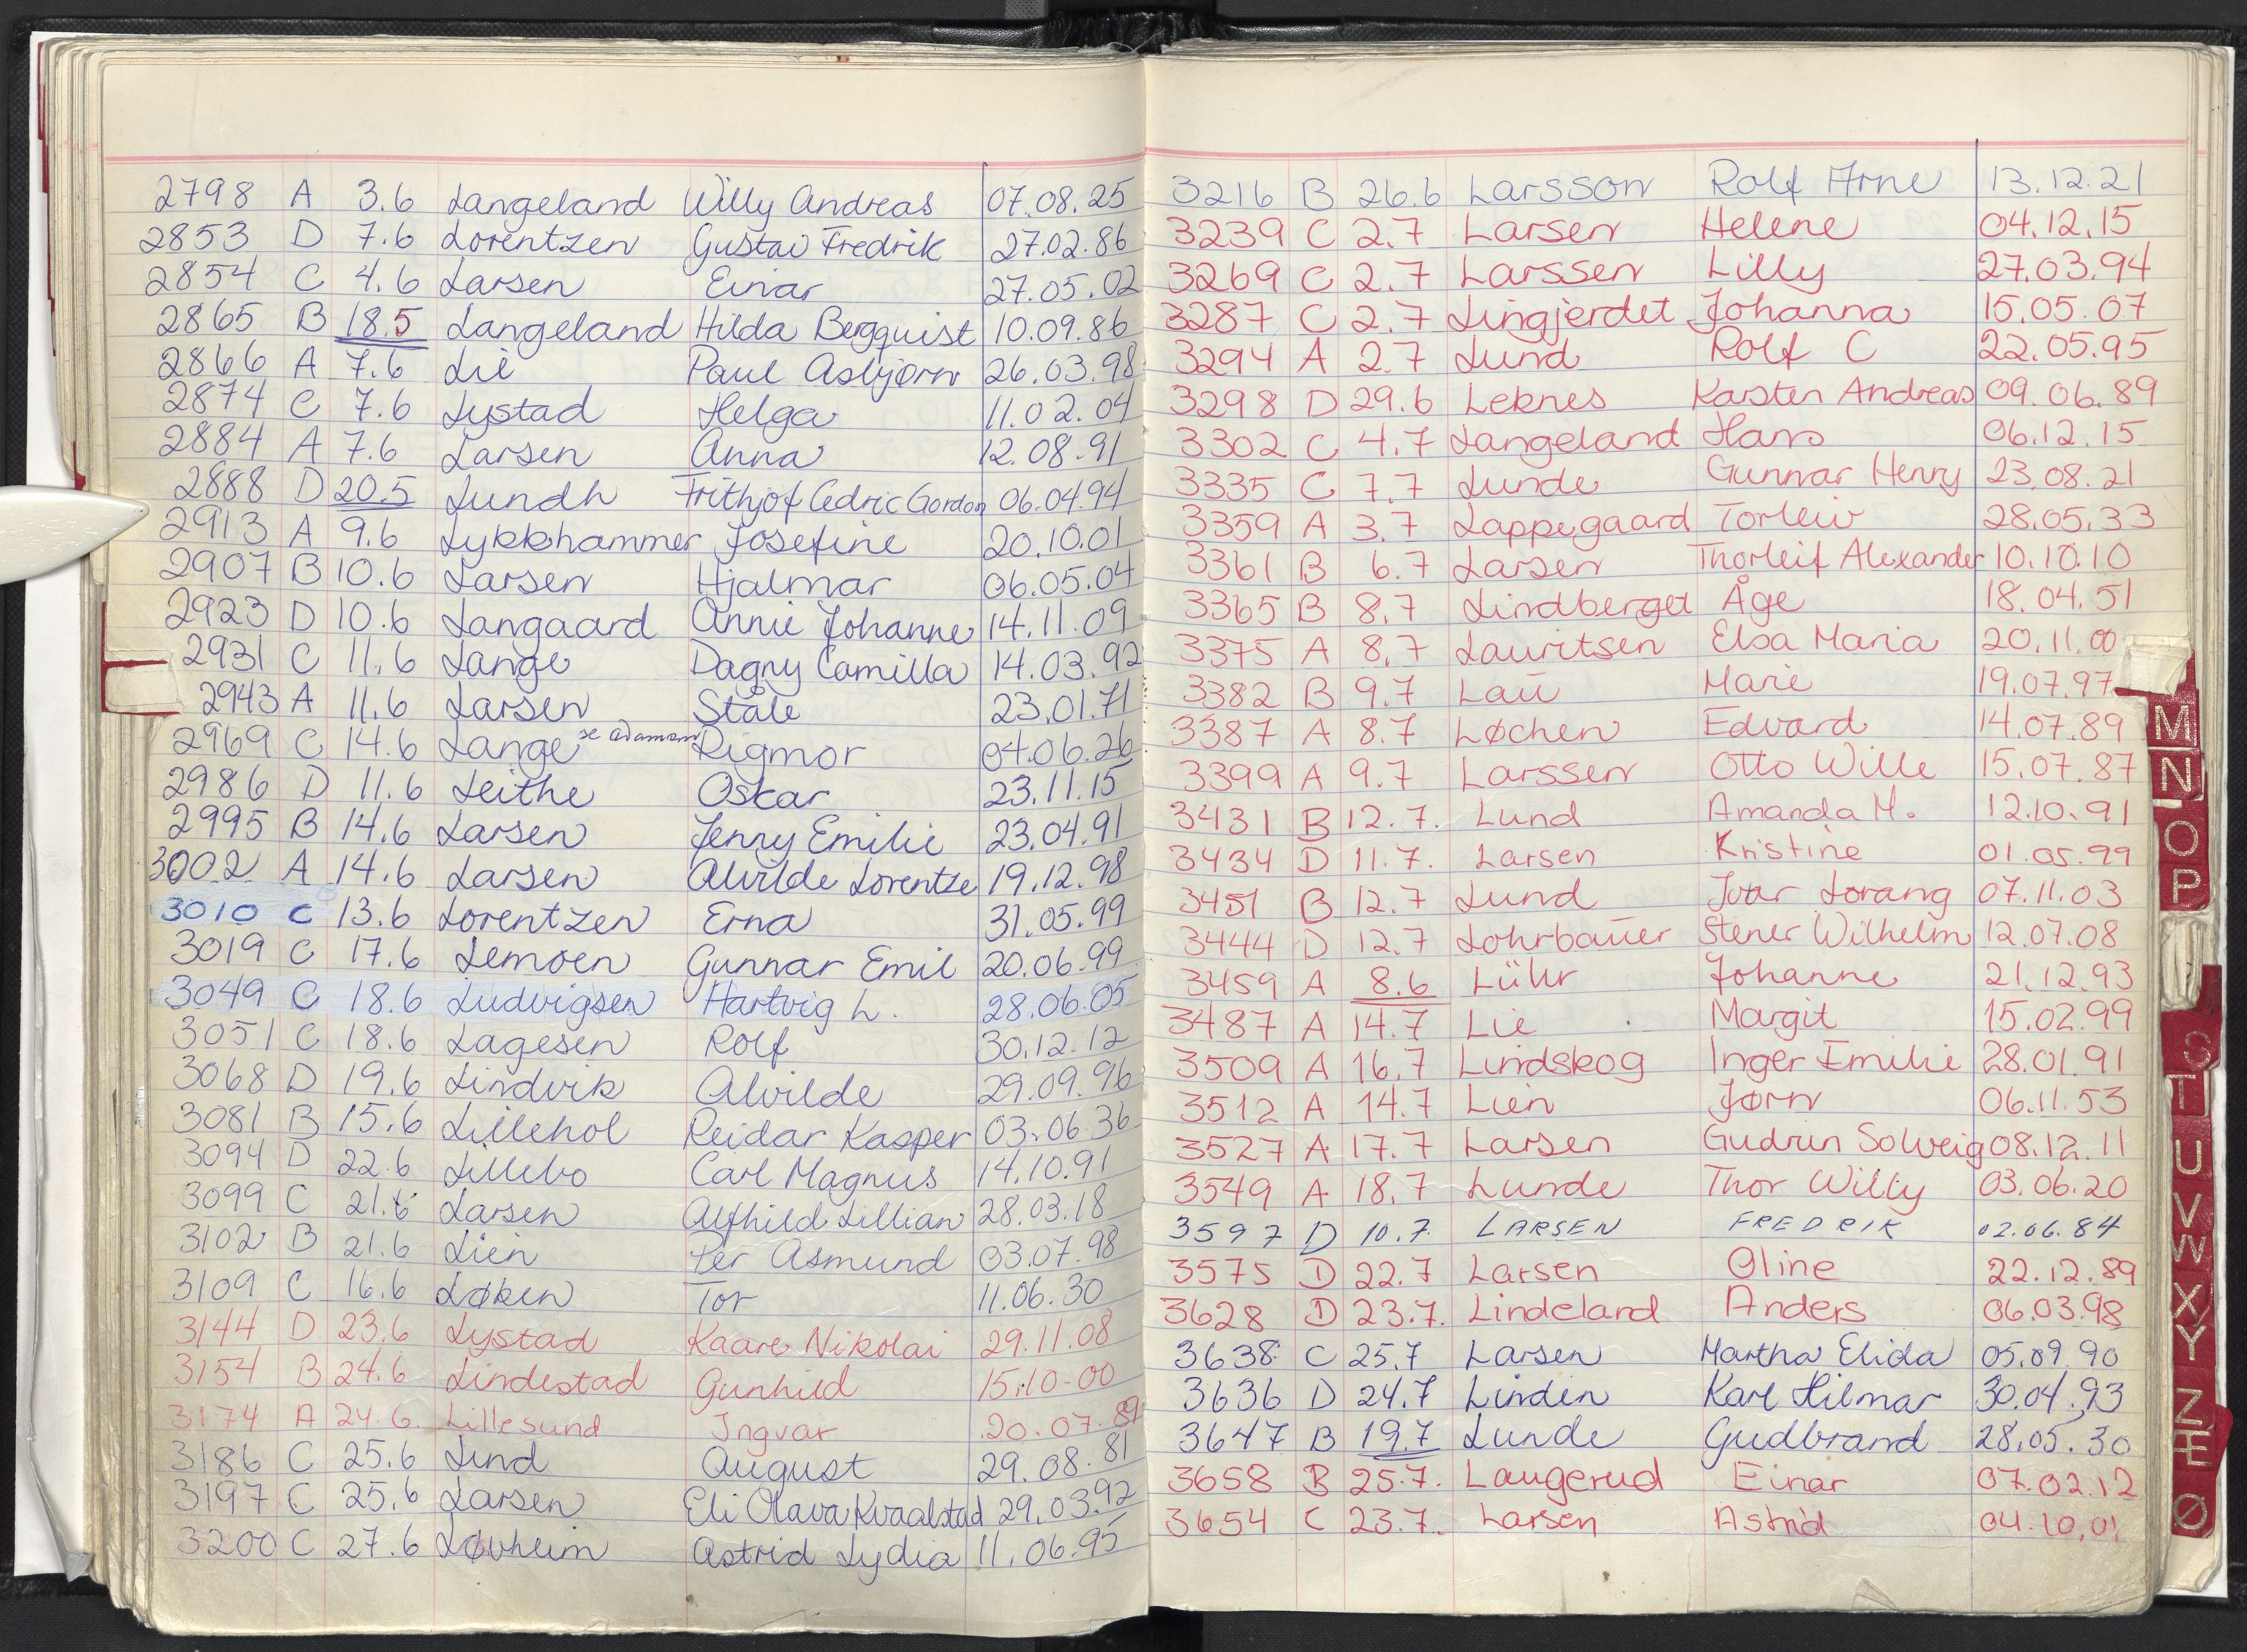 2798 A 3.6 Langeland Willy Andreas 07.08.25
2853 D 7.6 Lorentzen Gustav Fredrik 27.02.86
2854 C 4.6 Larsen Einar 27.05.02
2865 B 18.5 Langeland Hilda Bergquist 10.09.86
2866 A 7.6 Lie Paul Asbjørn 26.03.98
2874 C 7.6 Lystad Helga 11.02.04
2884 A 7.6 Larsen Anna 12.08.91
2888 D 20.5 Lundh Frithjof Cedric Gordon 06.04.94
2913 A 9.6 Lykkhammer Josefine 20.10.01
2907 B 10.6 Larsen Hjalmar 06.05.04
2923 D 10.6 Langaard Annie Johanne 14.11.09
2931 C 11.6 Lange Dagny Camilla 14.03.92
2943 A 11.6 Larsen Ståle 23.01.71
2969 C 14.6 Lange se Adamsen Rigmor 04.06.26
2986 D 11.6 Leithe Oskar 23.11.15
2995 B 14.6 Larsen Jenny Emilie 23.04.91
3002 A 14.6 Larsen Alvilde Lorentze 19.12.98
3010 C 13.6 Lorentzen Erna 31.05.99
3019 C 17.6 Lemoen Gunnar Emil 20.06.99
3049 C 18.6 Ludvigsen Hartvig L. 28.06.05
3051 C 18.6 Lagesen Rolf 30.12.12
3068 D 19.6 Lindvik Alvilde 29.09.96
3081 B 15.6 Lillehol Reidar Kasper 03.06.36
3094 D 22.6 Lillebo Carl Magnus 14.10.91
3099 C 21.6 Larsen Alfhild Lillian 28.03.18
3102 B 21.6 Lien Per Asmund 03.07.98
3109 C 16.6 Løken Tor 11.06.30
3144 D 23.6 Lystad Kaare Nikolai 29.11.08
3154 B 24.6 Lindestad Gunhild 15.10-00
3174 A 24.6. Lillesund Ingvar 20.07.89
3186 C 25.6 Lind August 29.08.81
3197 C 25.6 Larsen Eli Olava Kvaalstad 29.03.92
3200 C 27.6 Løvheim Astrid Lydia 11.06.95
3216 B 26.6 Larsson Rolf Arne 13.12.21
3239 C 2.7 Larsen Helene 04.12.15
3269 C 2.7 Larssen Lilly 27.03.94
3287 C 2.7 Lingjerdet Johanna 15.05.07
3294 A 2.7 Lund Rolf C 22.05.95
3298 D 29.6 Leknes Karsten Andreas 09.06.89
3302 C 4.7 Langeland Hans 06.12.15
3335 C 7.7 Lunde Gunnar Henry 23.08.21
3359 A 3.7 Lappegaard Torleiv 28.05.33
3361 B 6.7 Larsen Thorleif Alexander 10.10.10
3365 B 8.7 Lindberget Åge 18.04.51
3375 A 8.7 Lauritsen Elsa Maria 20.11.00
3382 B 9.7 Lau Marie 19.07.97
3387 A 8.7 Løchen Edvard 14.07.89
3399 A 9.7 Larssen Otto Wille 15.07.87
3431 B 12.7. Lund Amanda M. 12.10.91
3434 D 11.7. Larsen Kristine 01.05.99
3451 B 12.7 Lund Ivar Lorang 07.11.03
3444 D 12.7 Lohrbauer Stener Wilhelm 12.07.08
3459 A 8.6 Lühr Johanne 21.12.93
3487 A 14.7 Lie Margit 15.02.99
3509 A 16.7 Lindskog Inger Emilie 28.01.91
3512 A 14.7 Lien Jørn 06.11.53
3527 A 17.7 Larsen Gudrun Solveig 08.12.11
3549 A 18.7 Lunde Thor Willy 03.06.20
3597 D 10.7. LARSEN FREDRIK 02.06.84
3575 D 22.7 Larsen Oline 22.12.89
3628 D 23.7. Lindeland Anders 06.03.98
3638 C 25.7 Larsen Martha Elida 05.09.90
3636 D 24.7 Linden Karl Hilmar 30.04.93
3647 B 19.7 Lunde Gudbrand 28.05.30
3658 B 25.7. Laugerud Einar 07.02.12
3654 C 23.7. Larsen Astrid 04.10.01
M
N
O
P
S
T
U
V
W
X
Y
Z
Æ
Ø